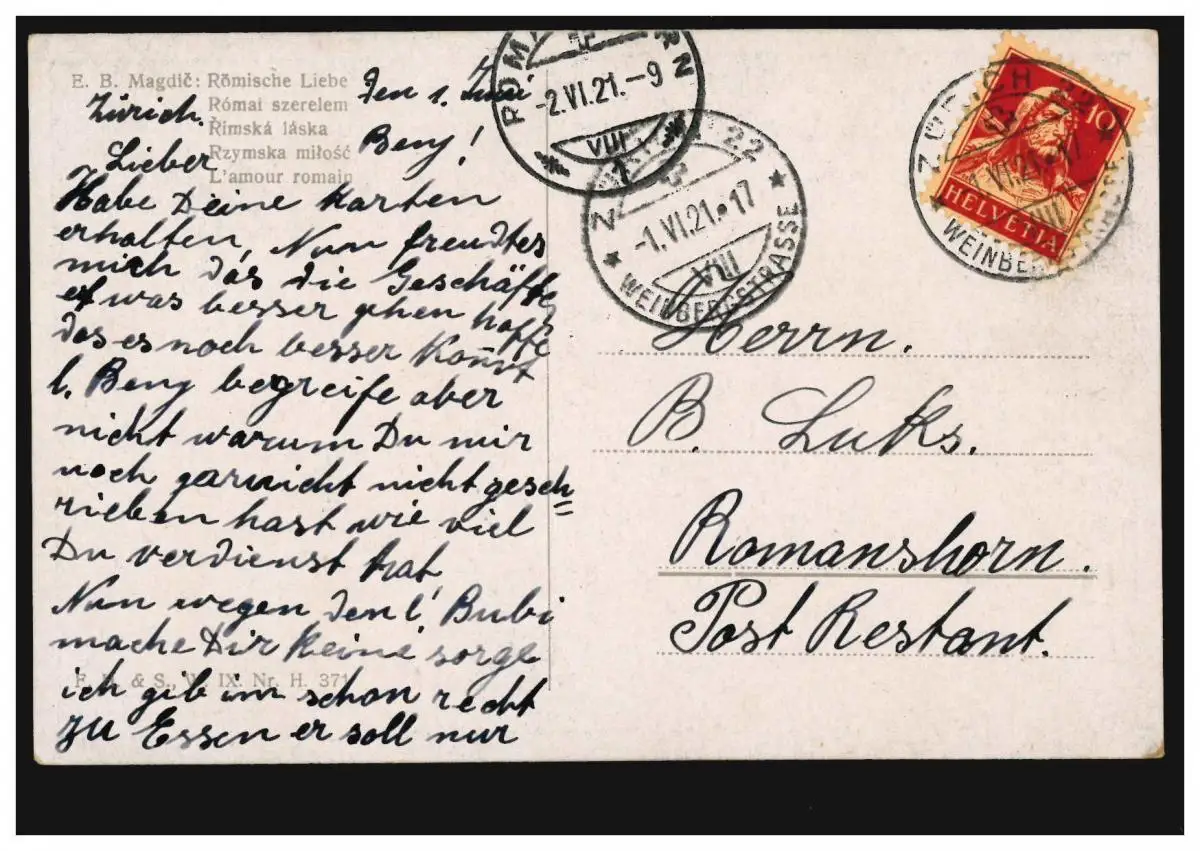 E. B. Magdič: Römische Liebe
Római szerelem
Římská láska
Rzymska miłość
L'amour romain
Zürich. den 1. Juni
Lieber Beny!
Habe Deine Karten
erhalten, Nun freudtes
mich das die Geschäfte
etwas besser gehen hoffe
das es noch besser komt
l. Beny begreife aber
nicht warum Du mir
noch garnicht nicht gesch=
rieben hast wie viel
Du verdienst hat
Nun wegen den l. Bubi
mache Dir keine sorge
ich gib im schon recht
zu Essen er soll nur
F. H. & S., W. IX. Nr. H. 371
ROMANSHORN
-2.VI.21.-9
VIII
1
ZÜRICH 22
3
-1.VI.21.17
VIII
WEINBERGSTRASSE
ZÜRICH 22
3
-1.VI.21.17
VIII
WEINBERGSTRASSE
10
HELVETIA
Herrn.
B. Luks.
Romanshorn.
Post Restant.